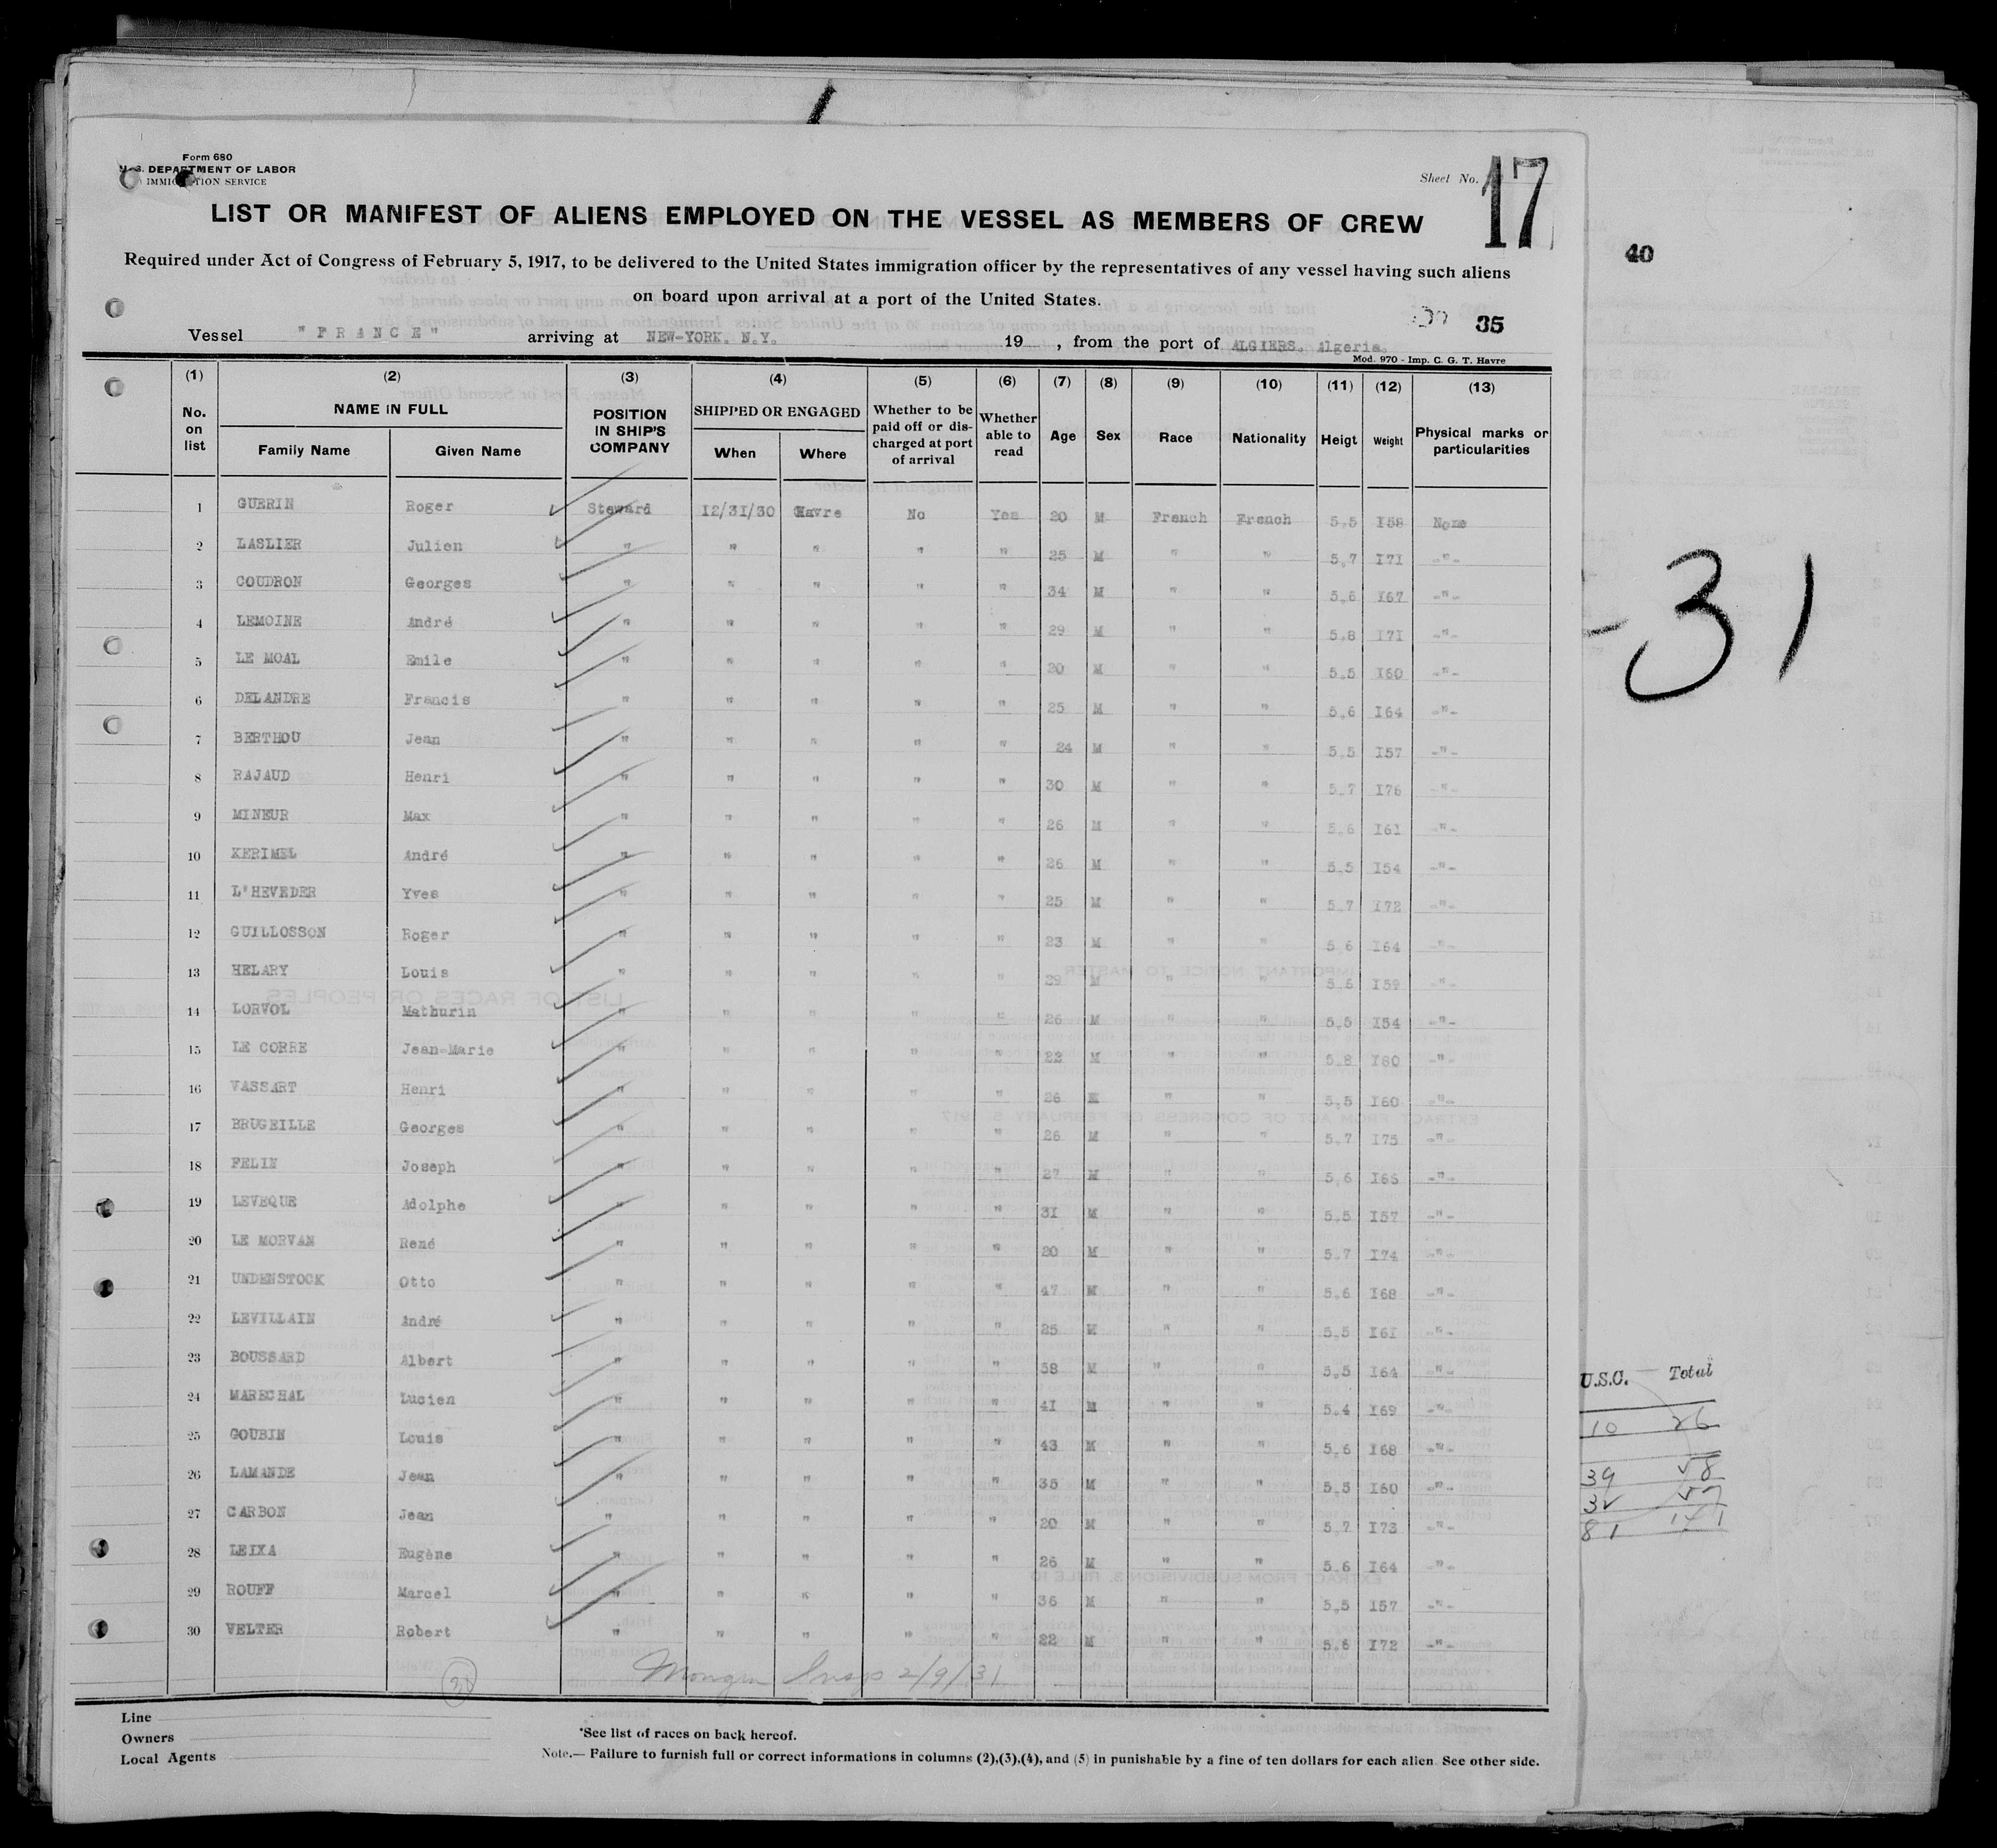 Form 680
U. S. DEPARTMENT OF LABOR
IMMIGRATION SERVICE
Sheet No. 17
LIST OR MANIFEST OF ALIENS EMPLOYED ON THE VESSEL AS MEMBERS OF CREW
40
Required under Act of Congress of February 5, 1917, to be delivered to the United States immigration officer by the representatives of any vessel having such aliens
on board upon arrival at a port of the United States.
35
Vessel "FRANCE" arriving at NEW-YORK. N.Y. 19 , from the port of ALGIERS. Algeria.
Mod. 970 - Imp. C. G. T. Havre
(1) (2) (3) (4) (5) (6) (7) (8) (9) (10) (11) (12) (13)
No. on list NAME IN FULL Family Name Given Name POSITION IN SHIP'S COMPANY SHIPPED OR ENGAGED When Where Whether to be paid off or discharged at port of arrival Whether able to read Age Sex Race Nationality Heigt Weight Physical marks or particularities
1 GUERIN Roger Steward 12/31/30 Havre No Yes 20 M French French 5.5 158 None
2 LASLIER Julien " " " " " 25 M " " 5.7 171 -"-
3 COUDRON Georges " " " " " 34 M " " 5.6 167 -"-
4 LEMOINE André " " " " " 29 M " " 5.8 171 -"-
5 LE MOAL Emile " " " " " 20 M " " 5.5 160 -"-
6 DELANDRE Francis " " " " " 25 M " " 5.6 164 -"-
7 BERTHOU Jean " " " " " 24 M " " 5.5 157 -"-
8 RAJAUD Henri " " " " " 30 M " " 5.7 176 -"-
9 MINEUR Max " " " " " 26 M " " 5.6 161 -"-
10 KERIMEL André " " " " " 26 M " " 5.5 154 -"-
11 L'HEVEDER Yves " " " " " 25 M " " 5.7 172 -"-
12 GUILLOSSON Roger " " " " " 23 M " " 5.6 164 -"-
13 HELARY Louis " " " " " 39 M " " 5.6 159 -"-
14 LORVOL Mathurin " " " " " 26 M " " 5.5 154 -"-
15 LE CORRE Jean-Marie " " " " " 22 M " " 5.8 180 -"-
16 VASSART Henri " " " " " 26 M " " 5.5 160 -"-
17 BRUGEILLE Georges " " " " " 26 M " " 5.7 175 -"-
18 FELIN Joseph " " " " " 27 M " " 5.6 165 -"-
19 LEVEQUE Adolphe " " " " " 31 M " " 5.5 157 -"-
20 LE MORVAN René " " " " " 20 M " " 5.7 174 -"-
21 UNDENSTOCK Otto " " " " " 47 M " " 5.6 168 -"-
22 LEVILLAIN André " " " " " 25 M " " 5.5 161 -"-
23 BOUSSARD Albert " " " " " 58 M " " 5.5 164 -"-
24 MARECHAL Lucien " " " " " 41 M " " 5.4 169 -"-
25 GOUBIN Louis " " " " " 43 M " " 5.6 168 -"-
26 LAMANDE Jean " " " " " 35 M " " 5.5 160 -"-
27 CARBON Jean " " " " " 20 M " " 5.7 173 -"-
28 LEIXA Eugène " " " " " 26 M " " 5.6 164 -"-
29 ROUFF Marcel " " " " " 36 M " " 5.5 157 -"-
30 VELTER Robert " " " " " 22 M " " 5.6 172 -"-
2/9/31
-31
U.S.C. Total
10 26
39 58
32 57
81 141
Line
Owners
Local Agents
*See list of races on back hereof.
Note.— Failure to furnish full or correct informations in columns (2),(3),(4), and (5) in punishable by a fine of ten dollars for each alien. See other side.